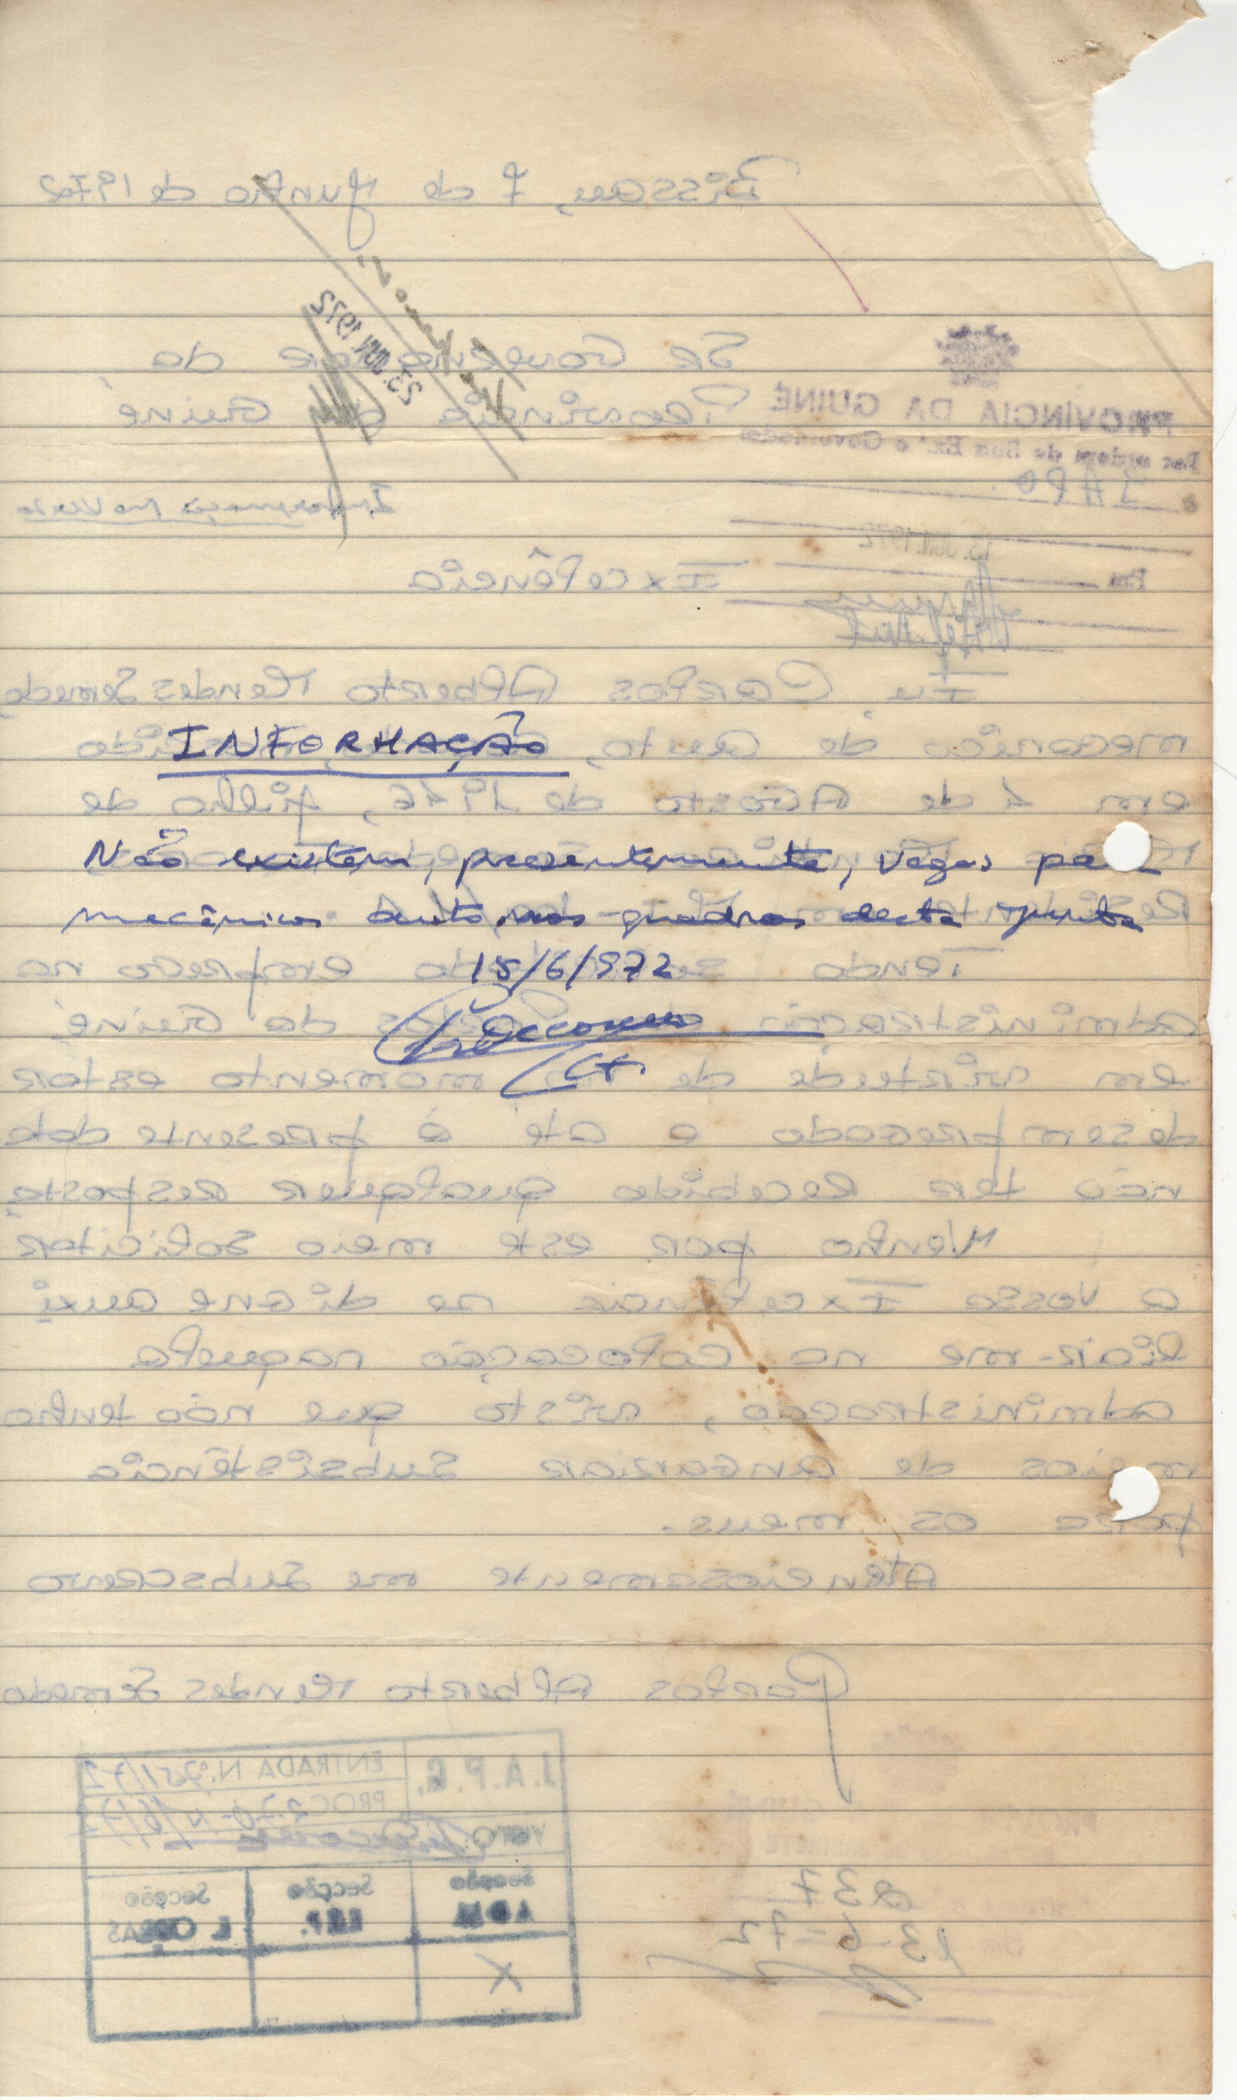 Bissau, 7 de Junho de 1972
23 JUN 1972
Sr Governador da
Província da Guiné
PROVÍNCIA DA GUINÉ
Por ordem de Sua Ex.ª o Governador
à JAPG
Informação no verso
13. JUN. 1972
Em
Excelência
Eu Carlos Alberto Mendes Semedo
mecanico de auto,
INFORMAÇÃO
em 1 de Agosto de 1946, filho de
Não existem, presentemente, vagas para
mecânicos auto nos quadros desta Junta
Tendo emprego na
15/6/972
administração Portos da Guiné
em virtude de no momento estar
desempregado e até á presente data
não ter recebido qualquer resposta
Venho por este meio solicitar
a vossa Excelência se digne auxi
liar-me na colocação naquela
administracao, visto que não tenho
meios de angariar subsistência
para os meus.
Atenciosamente me subscrevo
Carlos Alberto Mendes Semedo
J.A.P.G.
ENTRADA N. 951/72
PROC
VISTO
Secção
ADM
Secção
E.E.P.
Secção
E. OBRAS
X
237
13-6-72